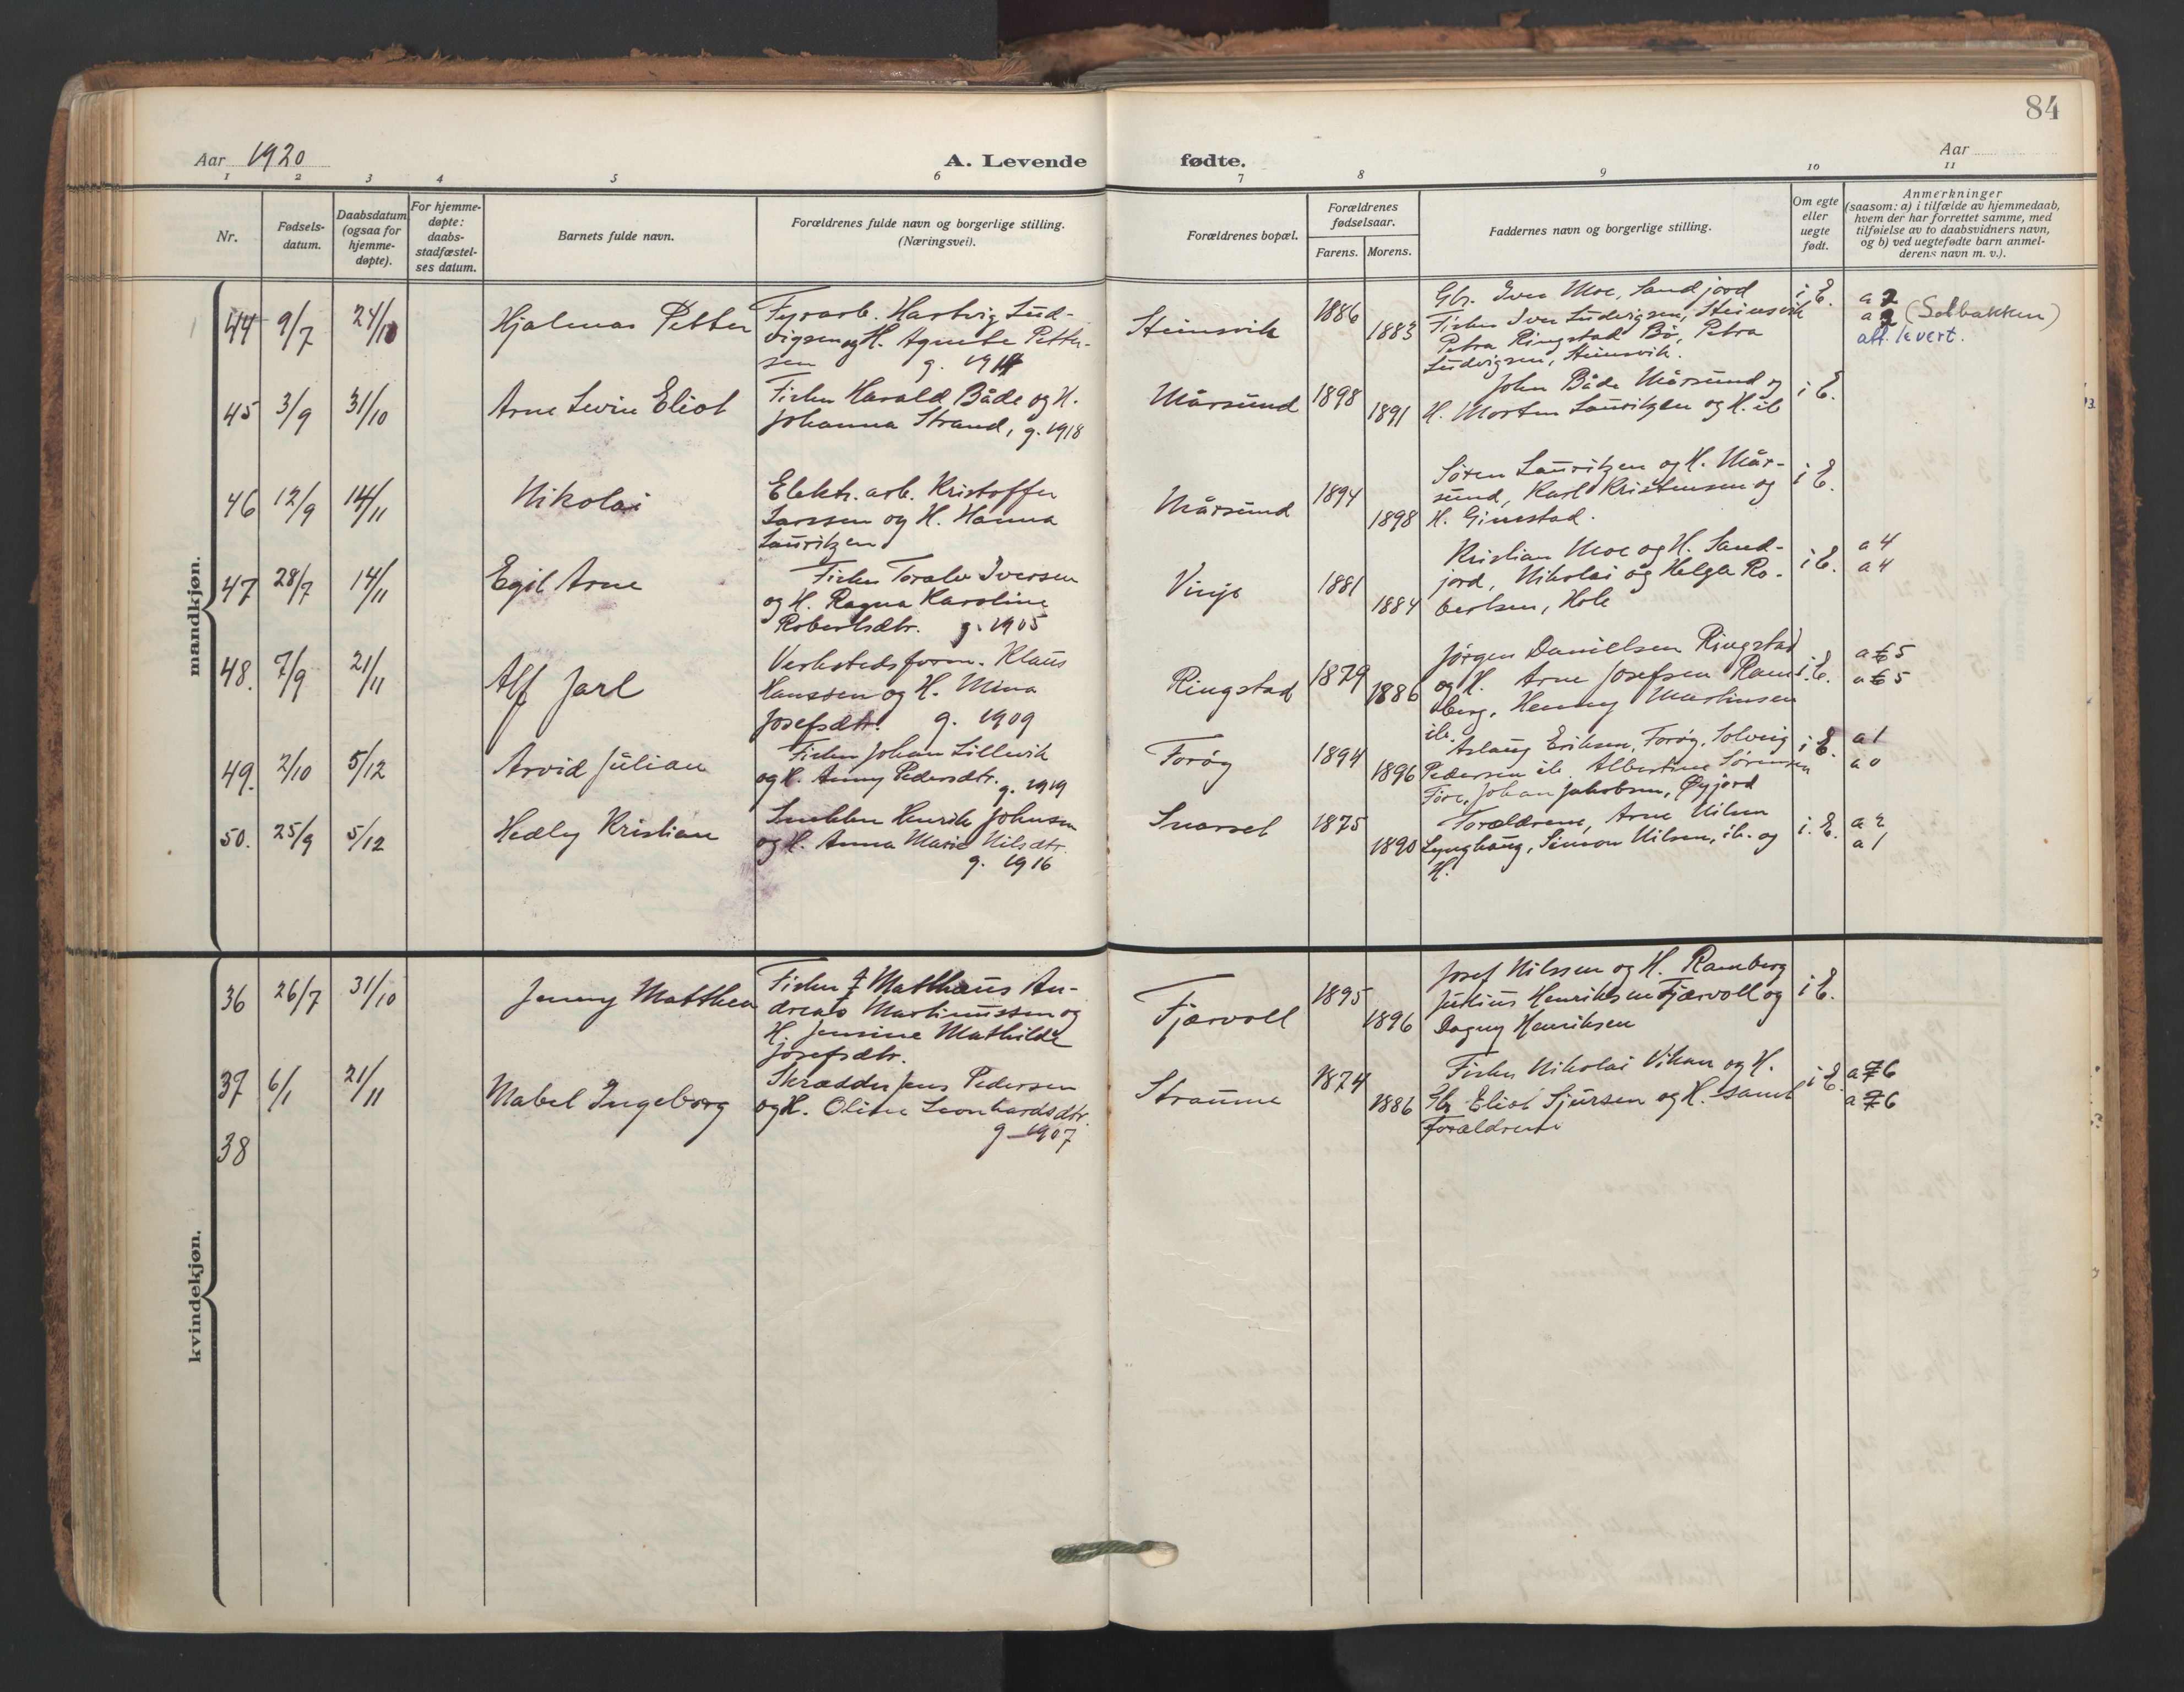 84
Aar 1920
A. Levende
fødte.
Aar
1 2 3 4 5 6 7 8 9 10 11
Nr.
Fødsels-
datum.
Daabsdatum
(ogsaa for
hjemme-
døpte).
For hjemme-
døpte:
daabs-
stadfæstel-
ses datum.
Barnets fulde navn.
Forældrenes fulde navn og borgerlige stilling.
(Næringsvei).
Forældrenes bopæl.
Forældrenes
fødselsaar.
Farens. Morens.
Faddernes navn og borgerlige stilling.
Om egte
eller
uegte
født.
Anmerkninger
(saasom: a) i tilfælde av hjemmedaab,
hvem der har forrettet samme, med
tilføielse av to daabsvidners navn,
og b) ved uegtefødte barn anmel-
derens navn m. v.).
mandkjøn.
44 9/7 24/10 Hjalmar Petter
Fyrarb. Hartvig Lud-
vigsen og H. Agnete Petter-
sen g. 1914
Steinsvik 1886 1883
Gbr. Iver Moe, Sandjord
Fisker Iver Ludvigsen, Steinsvik
Petra Ringstad Bø, Petra
Ludvigsen, Steinsvik.
i E.
a 2
a 2 (Solbakken)
att. levert.
45 3/9 31/10 Arne Levin Eliot
Fisker Harald Både og H.
Johanna Strand, g. 1918
Mårsund 1898 1891
John Både Mårsund og
H. Morten Lauritzen og H. ib
i E.
46 12/9 14/11 Nikolai
Elektr. arb. Kristoffer
Larssen og H. Hanna
Lauritzen
Mårsund 1894 1898
Søren Lauritzen og H. Mår-
sund, Karl Kristensen og
H. Ginestad.
i E.
47 28/7 14/11 Egil Arne
Fisker Toralv Iversen
og H. Ragna Karoline
Robertsdtr. g. 1905
Vinje 1881 1884
Kristian Moe og H. Sand-
jord, Nikolai og Helga Ro-
bertsen, Hole
i E.
a 4
a 4
48. 7/9 21/11 Alf Jarl
Verkstedsform. Klaus
Hanssen og H. Mina
Josefsdtr. g. 1909
Ringstad 1879 1886
Jørgen Daniellsen Ringstad
og H. Arne Josefsen Ram-
berg, Henny Martinsen
ib.
i E.
a 6 5
a 6 5
49. 2/10 5/12 Arvid Julian
Fisker Johan Lillevik
og H. Anny Pedersdtr. g. 1919
Forøy 1894 1896
Aslaug Eriksen, Forøy, Solveig
Pedersen ib. Albertine Sørensen
Føre, Johan Jakobsen, Øyjord
i E.
a 1
a 0
50. 25/9 5/12 Hedly Kristian
Snekker Henrik Johnsen
og H. Anna Marie Nilsdtr.
g. 1916
Snarset 1875 1890
Forældrene, Arne Nilsen
Lynghaug, Simon Nilsen, ib. og
H.
i. E.
a 2
a 1
kvindekjøn.
36 26/7 31/10 Jenny Matthea
Fisker Matthæus An-
dreas Martinussen og
H. Jensine Mathilde
Josefsdtr.
Fjærvoll 1895 1896
Josef Nilssen og H. Ramberg
Julius Henriksen Fjærvoll og
Dagny Henriksen
i E.
37 6/1 21/11 Mabel Ingeborg
Skrædder Jens Pedersen
og H. Oline Leonhardsdtr.
g. 1907
Straume 1874 1886
Fisker Nikolai Vikan og H.
Gbr. Eliot Sjursen og H. samt
Forældrene
i E.
a 7 6
a 7 6
38